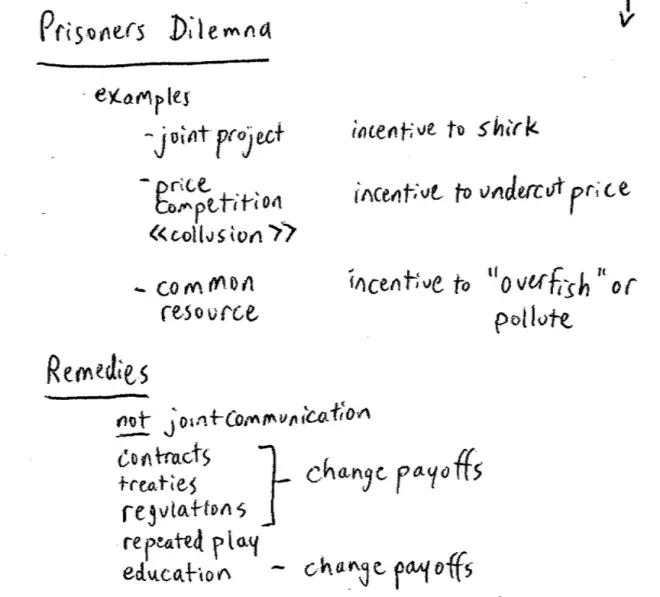 Prisoners Dilemna
examples
- joint project incentive to shirk
- price competition incentive to undercut price
<<collusion>>
- common incentive to "overfish" or
resource pollute
Remedies
not joint communication
contracts
treaties change payoffs
regulations
repeated play
education - change payoffs